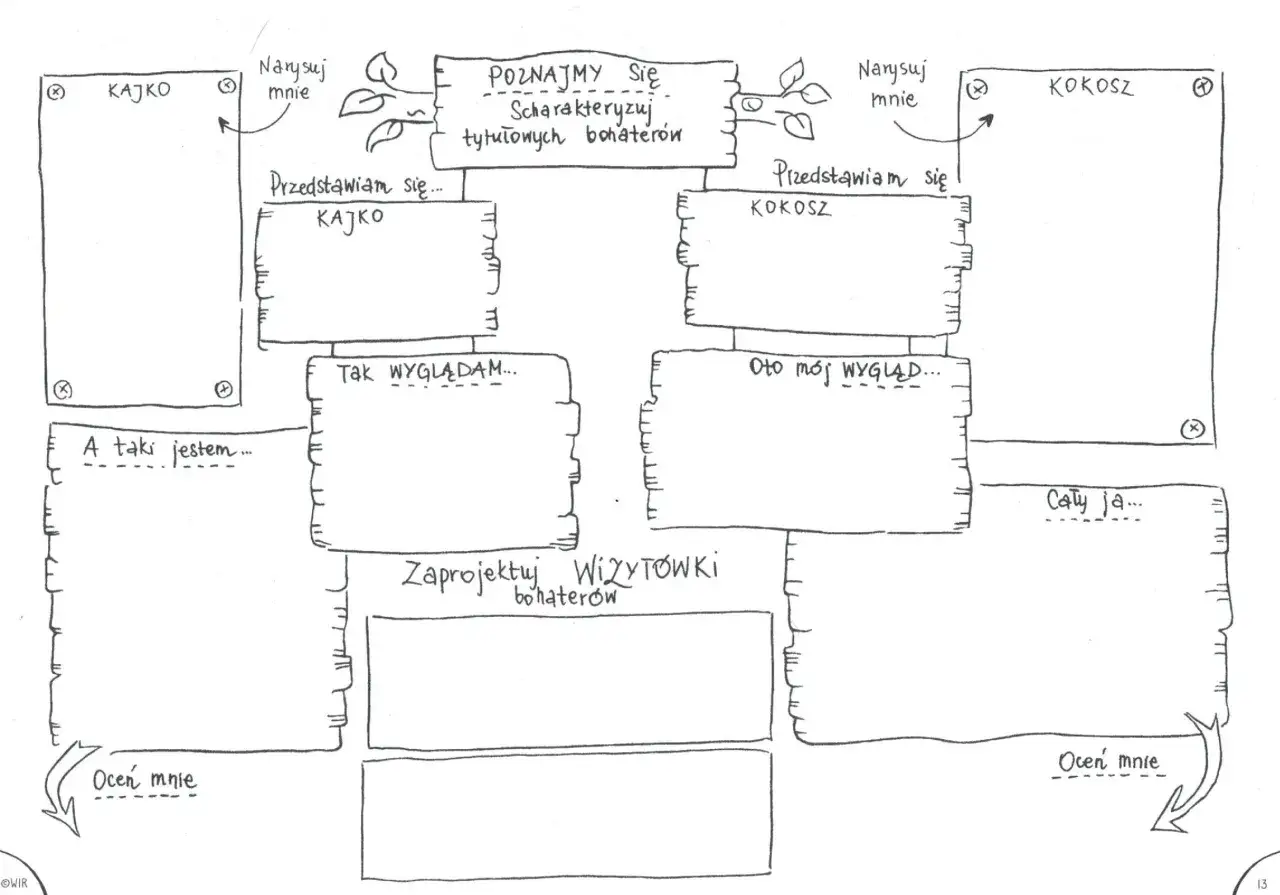 KAJKO
Narysuj
mnie
POZNAJMY Się
Scharakteryzuj
tytułowych bohaterów
Narysuj
mnie
KOKOSZ
Przedstawiam się...
KAJKO
Przedstawiam się
KOKOSZ
Tak WYGLĄDAM...
Oto mój WYGLĄD...
A taki jestem...
Cały ja...
Zaprojektuj WiZYTÓWKi
bohaterów
Oceń mnie
Oceń mnie
©WiR
13